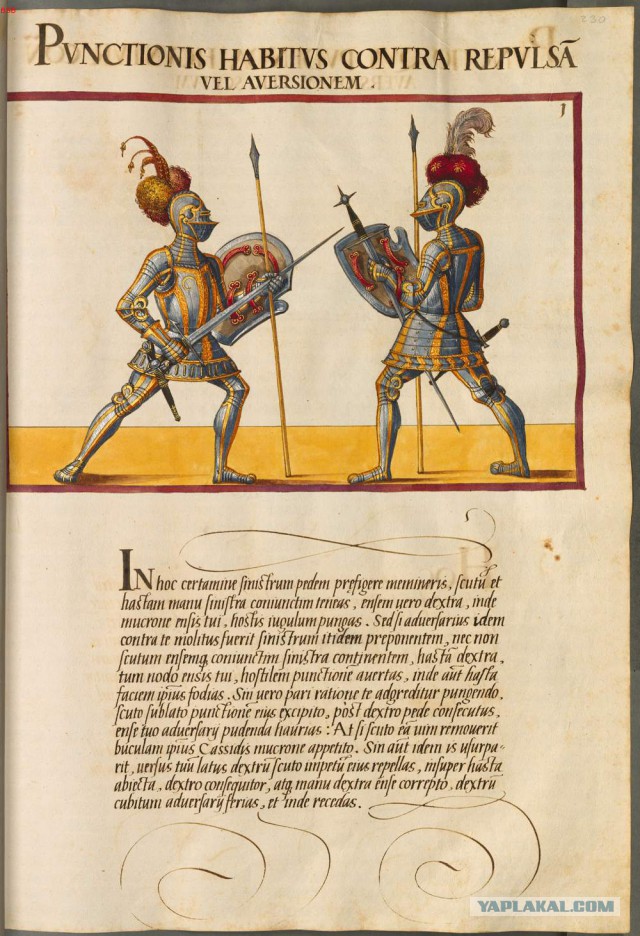 230
PVNCTIONIS HABITVS CONTRA REPVLSÃ
VEL AVERSIONEM.
1
IN hoc certamine sinistrum pedem prefigere memineris, scutũ et
hastam manu sinistra coniunctim teneas, ensem uero dextra, inde
mucrone ensis tui, hostis iugulum pungas. Sed si aduersarius idem
contra te molitus fuerit sinistrum itidem preponentem, nec non
scutum ensemq coniunctim sinistra continentem, hastã dextra,
tum nodo ensis tui, hostilem punctione auertas, inde aũt hasta
faciem ipsius fodias. Sin uero pari ratione te adgreditur pungendo,
scuto sublato punctione eius excipito, post dextro pede consecutus,
ense tuo aduersarij pudenda haurias: At si scuto eã uim remouerit
buculam ipsius Cassidis mucrone appetito. Sin aũt idem is usurpa-
rit, uersus tuũ latus dextrũ scuto impetũ eius repellas, insuper hasta
abiecta, dextro consequitor, atq manu dextra ense correpto, dextrũ
cubitum aduersarij ferias, et inde recedas.
YAPLAKAL.COM